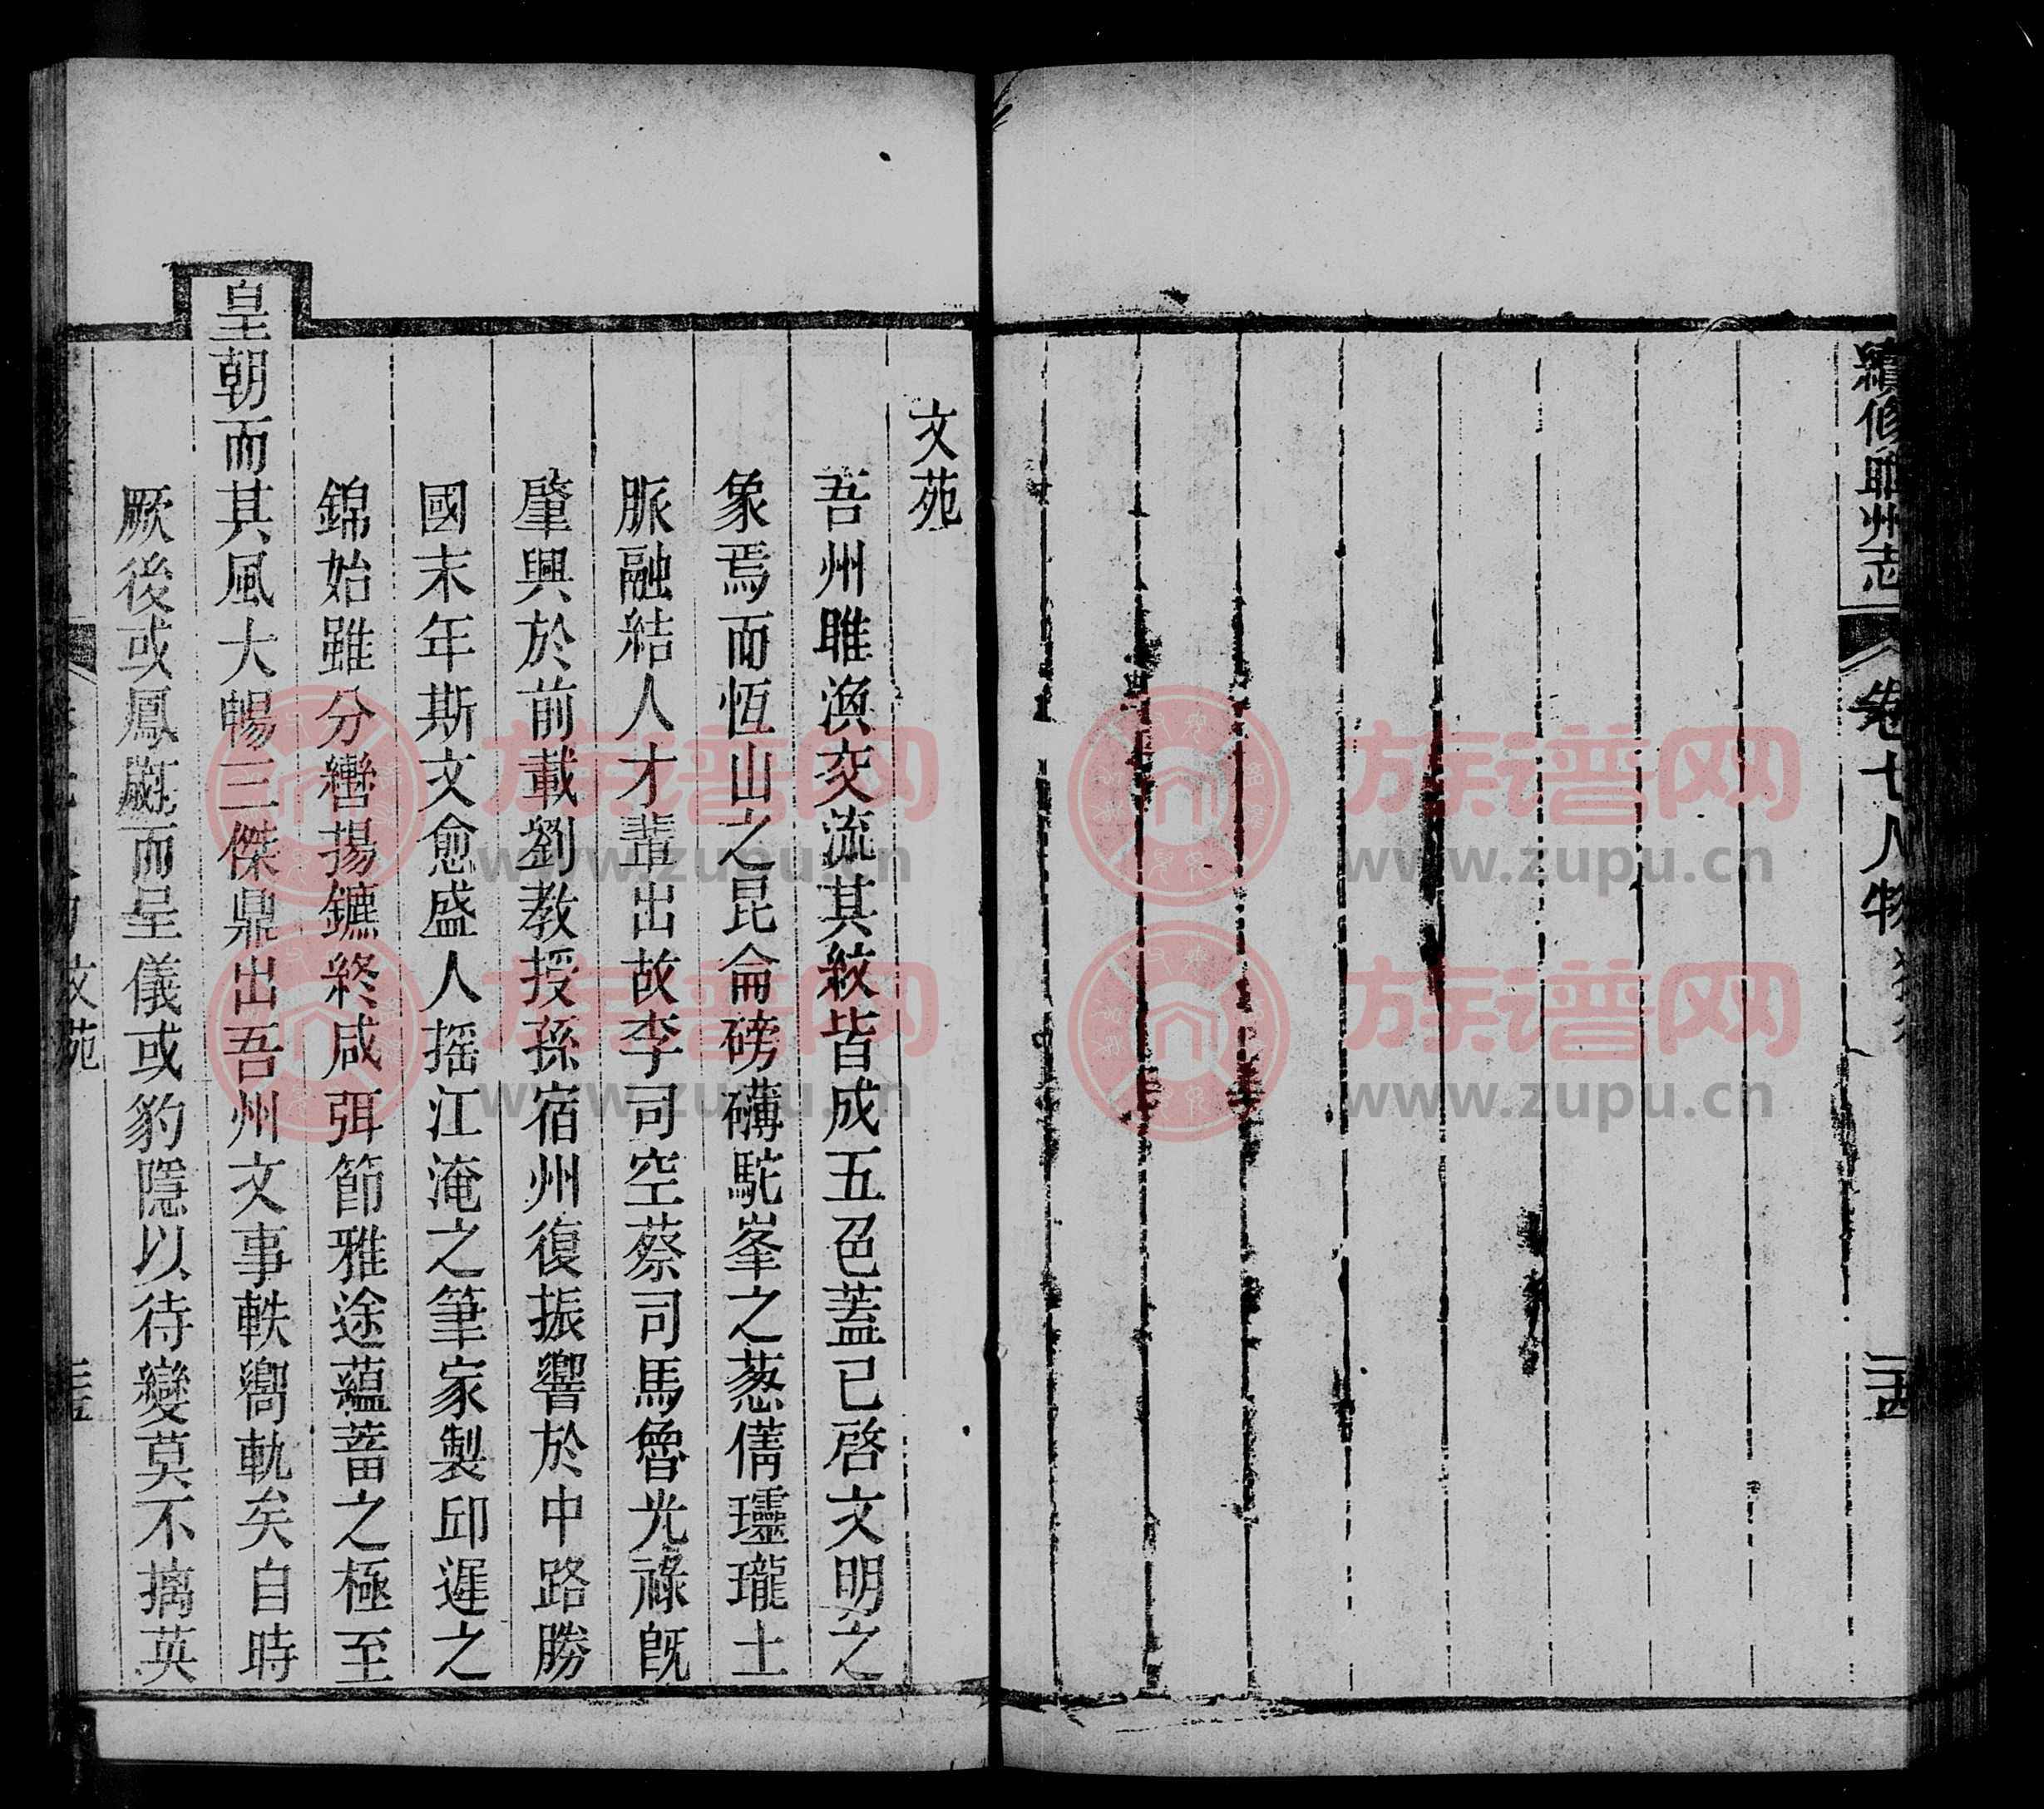 續修睢州志
卷七人物
二十四
文苑
吾州睢渙交流其紋皆成五色蓋已啓文明之
象焉而恆山之昆侖磅礴駝峯之葱蒨瓏土
脈融結人才輩出故李司空蔡司馬魯光祿旣
肇興於前載劉教授孫宿州復振響於中路勝
國末年斯文愈盛人搖江淹之筆家製邱遲之
錦始雖分轡揚鑣終咸弭節雅途蘊蓄之極至
皇朝而其風大暢三傑鼎出吾州文事軼嚮軌矣自時
厥後或鳳翽而呈儀或豹隱以待變莫不摛英
文苑
族谱网
www.zupu.cn
族谱网
www.zupu.cn
族谱网
www.zupu.cn
族谱网
www.zupu.cn